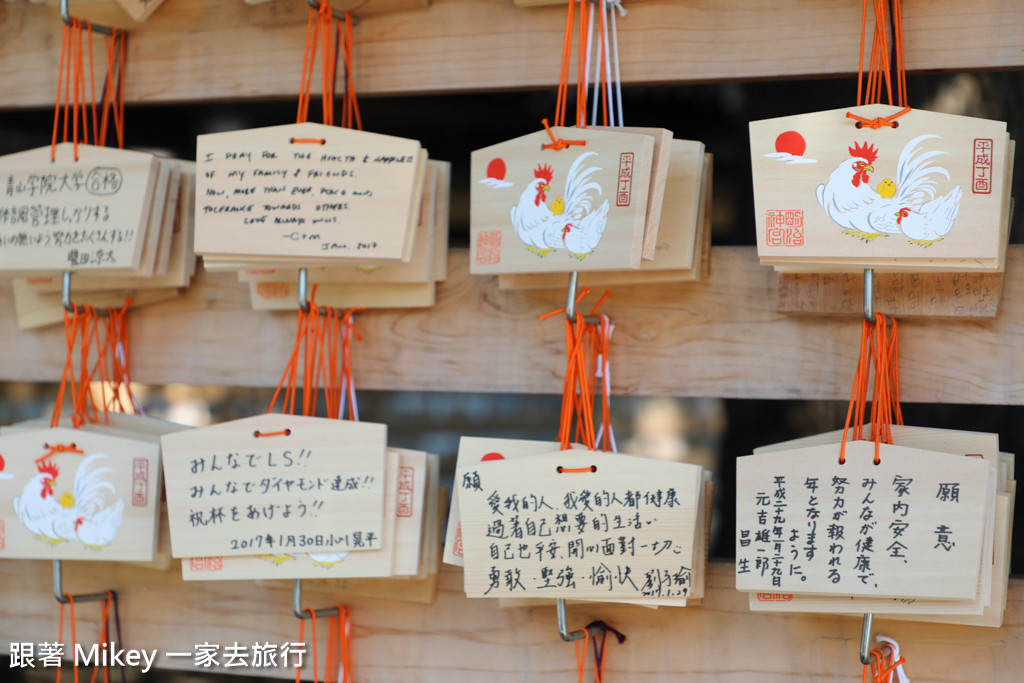 青山学院大学 合格
體調管理しっかりする
努力をたくさんする!!
I PRAY FOR THE HEALTH & HAPPINESS
OF MY FAMILY & FRIENDS.
NOW, MORE THAN EVER, PEACE AND
TOLERANCE TOWARDS OTHERS.
LOVE ALWAYS WINS.
-C+M
JAN. 2017
平成丁酉
平成丁酉
明治神宮
平成丁酉
みんなでLS!!
みんなでダイヤモンド達成!!
祝杯をあげよう!!
2017年1月30日小川晃平
平成丁酉
願
愛我的人、我愛的人都健康
過著自己想要的生活。
自己也平安、開心面對一切。
勇敢、堅強、愉快 劉子瑜
2017.1.29
願意
家内安全、
みんなが健康で、
努力が報われる
年となります
ように。
平成二十九年一月二十九日
元吉雄一郎
昌生
跟著 Mikey 一家去旅行